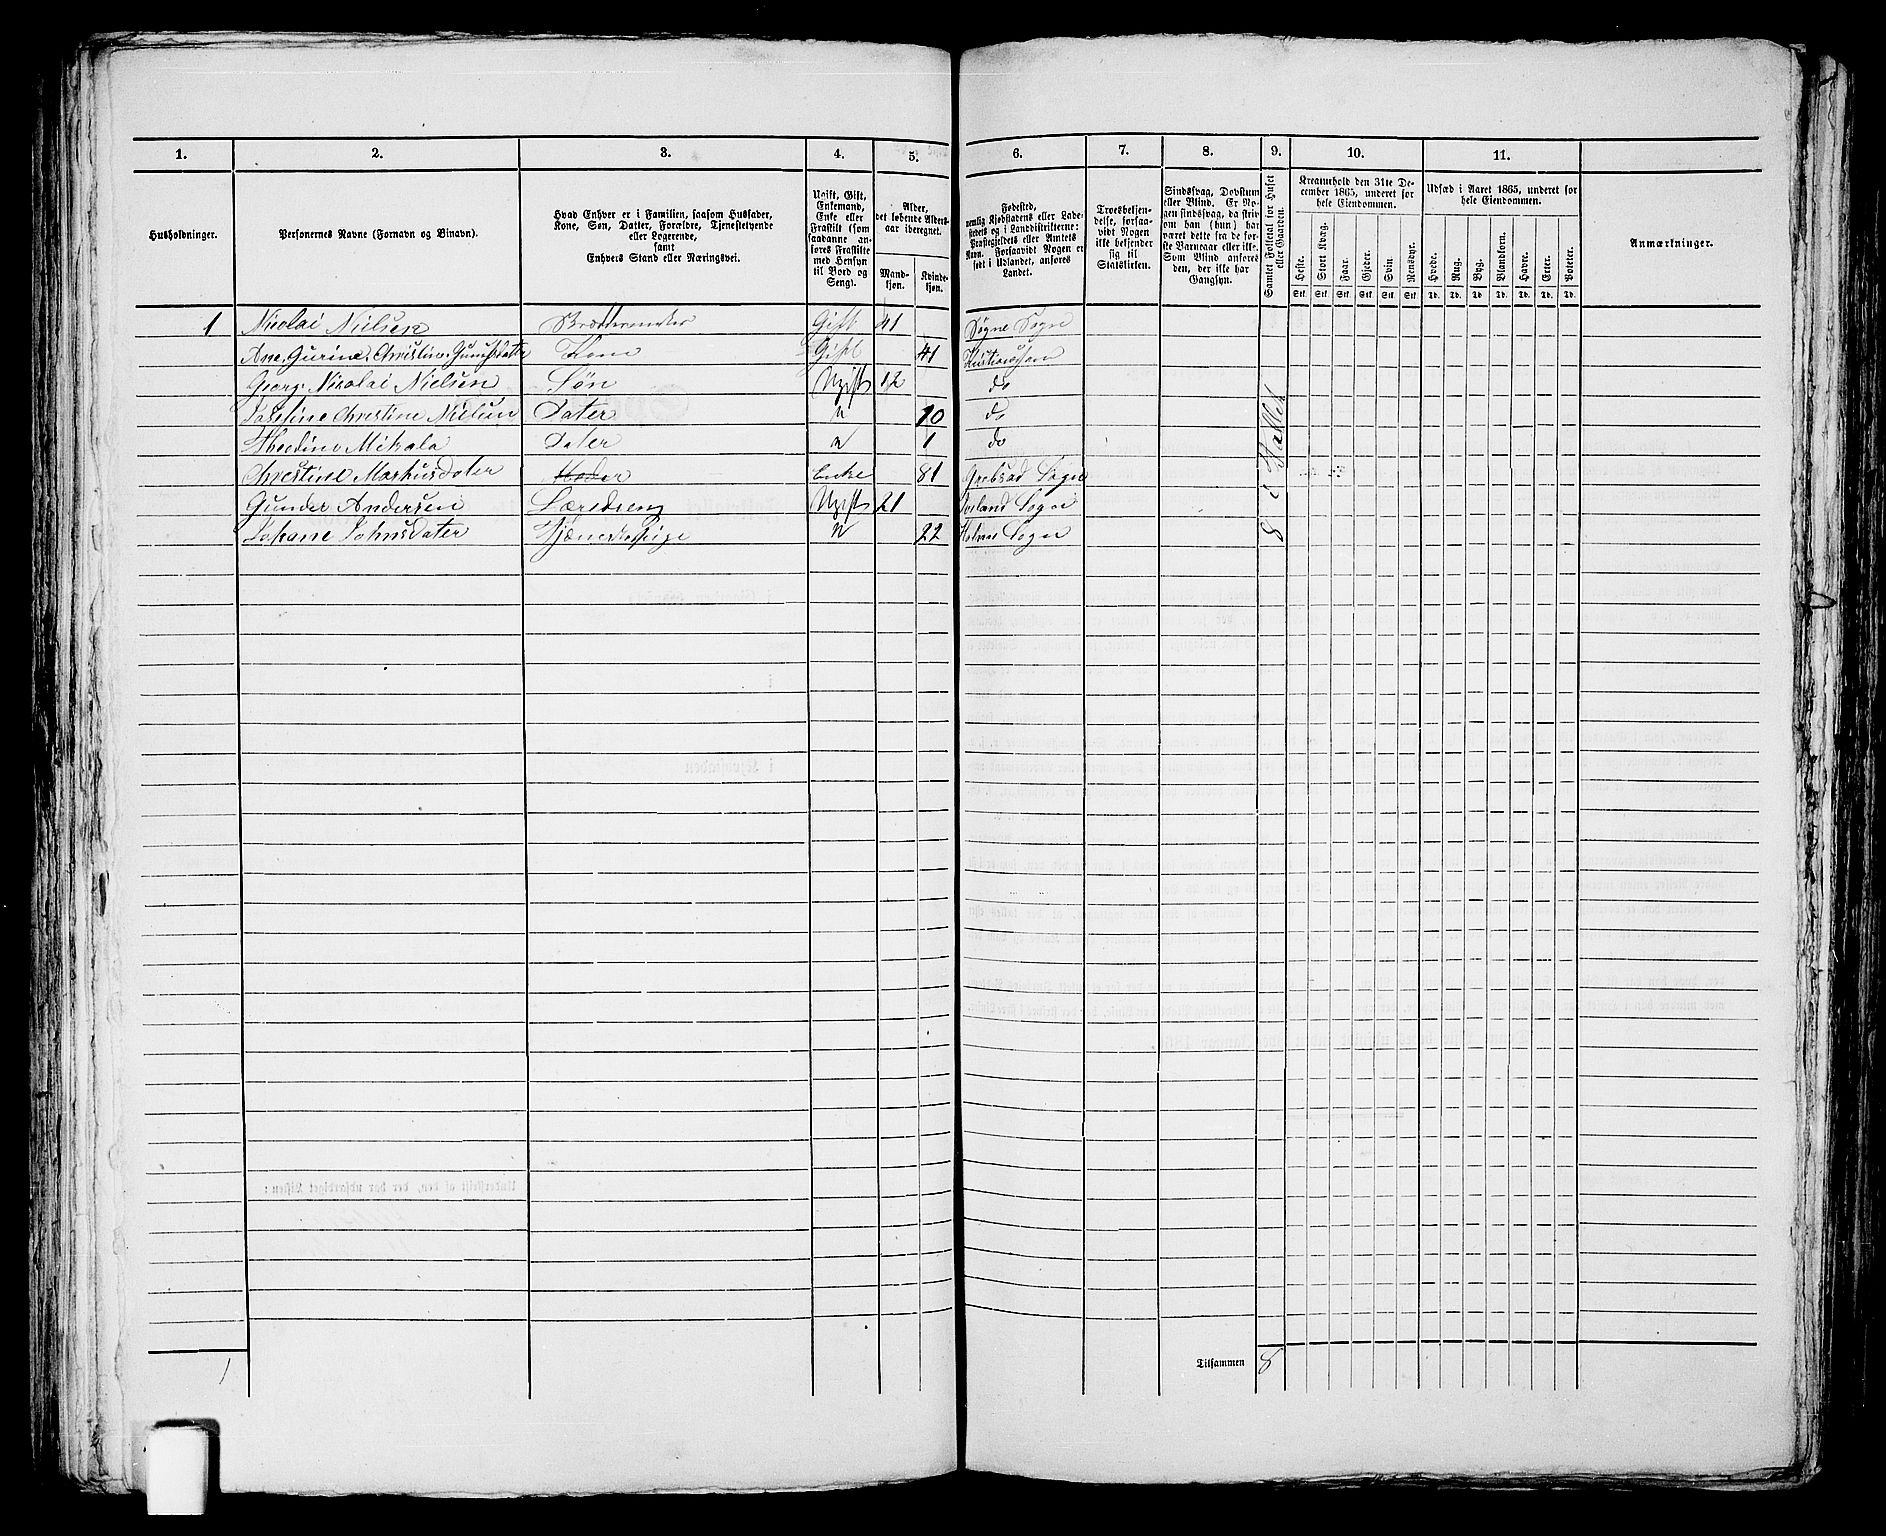 1. 2. 3. 4. 5. 6. 7. 8. 9. 10. 11.
Husholdninger.
Personernes Navne (Fornavn og Binavn).
Hvad Enhver er i Familien, saasom Husfader,
Kone, Søn, Datter, Forældre, Tjenestetyende
eller Logerende,
samt
Enhvers Stand eller Næringsvei.
Ugift, Gift,
Enkemand,
Enke eller
Fraskilt (som
saadanne an-
føres Fraskilte
med Hensyn
til Bord og
Seng).
Alder,
det løbende Alders-
aar iberegnet.
Mand-
kjøn.
Kvinde-
kjøn.
Fødested,
nemlig Kjøbstadens eller Lade-
stedets og i Landdistrikterne:
Præstegjeldets eller Amtets
Navn. Forsaavidt Nogen er
født i Udlandet, anføres
Landet.
Troesbekjen-
delse, forsaa-
vidt Nogen
ikke bekjender
sig til
Statskirken.
Sindssvag, Døvstum
eller Blind. Er No-
gen sindssvag, da skriv
om han (hun) har
været dette fra de før-
ste Barneaar eller ikke.
Som Blind anføres
den, der ikke har
Gangsyn.
Samlet Folketal for Huset
eller Gaarden.
Kreaturhold den 31te De-
cember 1865, underet for
hele Eiendommen.
Heste. Stort Kvæg. Faar. Gjeder. Svin. Rensdyr.
Stk. Stk. Stk. Stk. Stk. Stk.
Udsæd i Aaret 1865, underet for
hele Eiendommen.
Hvede. Rug. Byg. Blandkorn. Havre. Erter. Poteter.
Td. Td. Td. Td. Td. Td. Td.
Anmærkninger.
1 Nicolai Nielsen Gift 41 Søgne Sogn
Ane Gurine Christine Kone Gift 41
Georg Nicolai Nielsen Søn Ugift 12 do
Josefine Christine Nielsen Dater u 10 do
Mikala Dater u 1 do
Christine Markusdater Moder Enke 81 Sogn
Gunder Andersen Læredreng Ugift 21 Sogn
Johane Johnsdater Tjenestepige u 22 Holme Sogn
8 i Tallet
1
Tilsammen 8